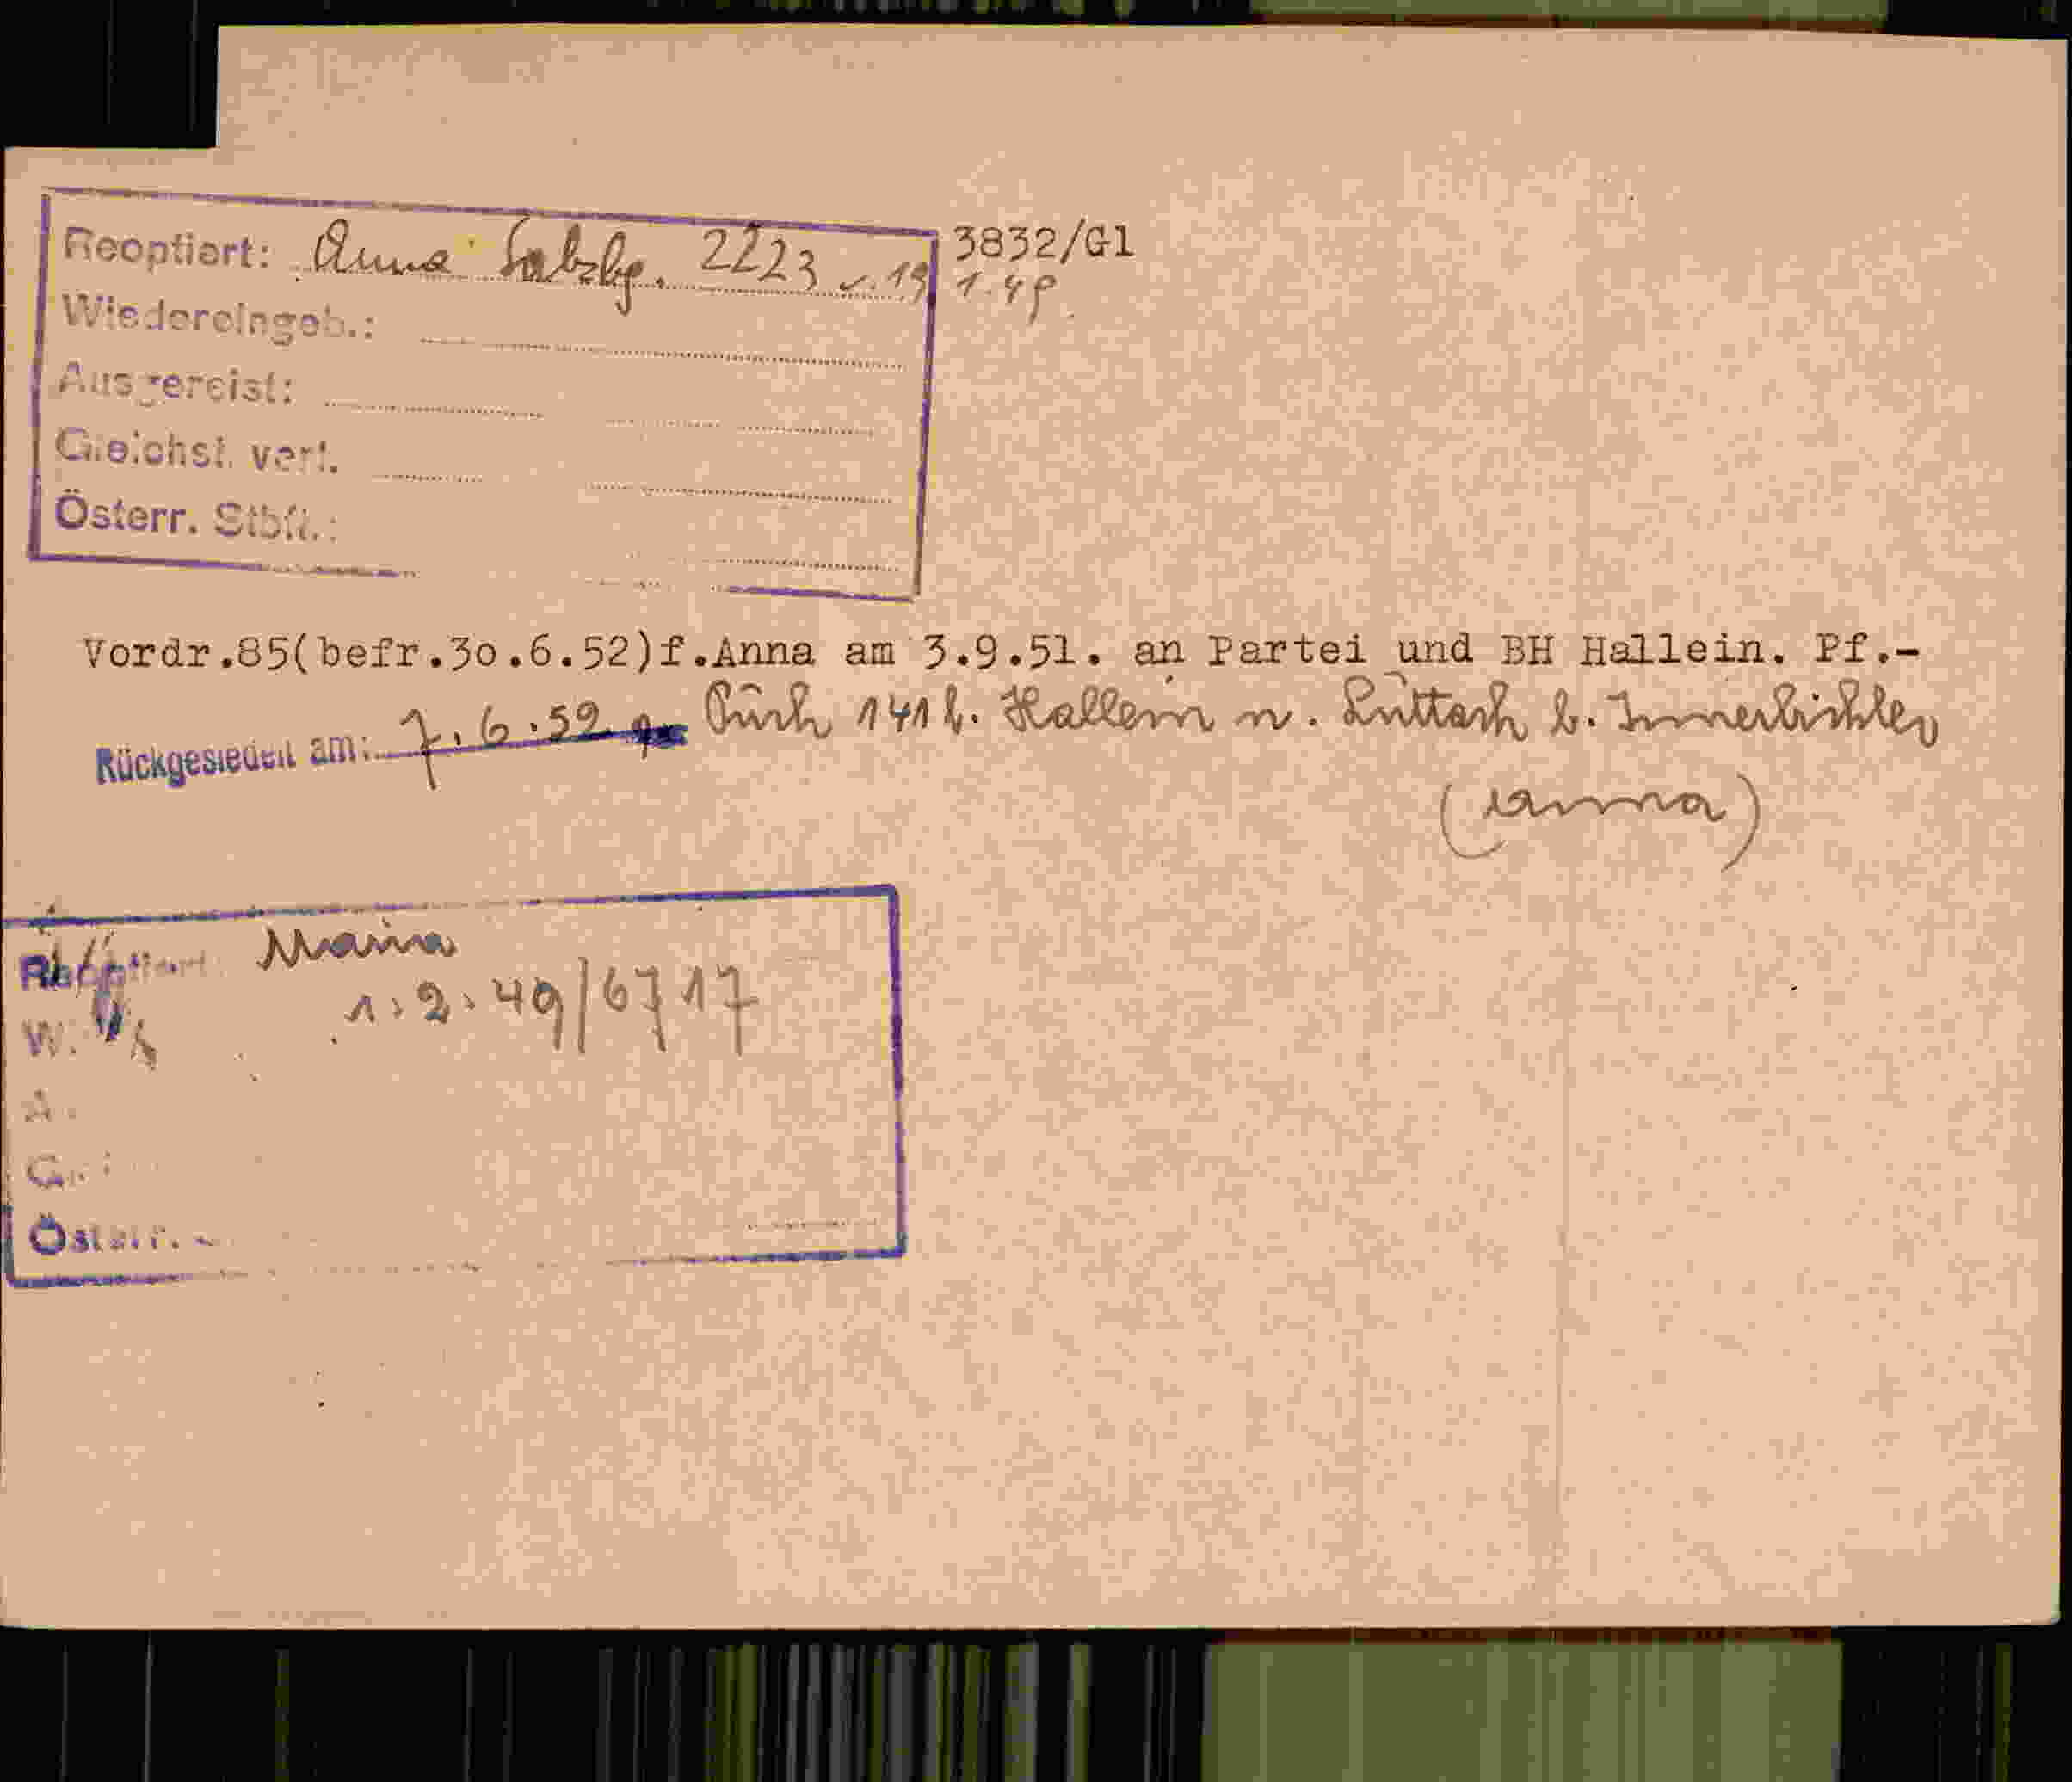 Reoptiert: Anna Salzbg. 2223 v. 19. 1. 49 3832/Gl
Wiedereingeb.:
Ausgereist:
Gleichst. verl.
Österr. Stbft.:
Vordr.85(befr.3o.6.52)f.Anna am 3.9.51. an Partei und BH Hallein. Pf.-
Rückgesiedelt am: 7.6.52 Puch 141 b. Hallein n. Luttach b. Innerbichler
(Anna)
Reoptiert: Maria
1.2.49/6717
W.
A.
G.
Österr.